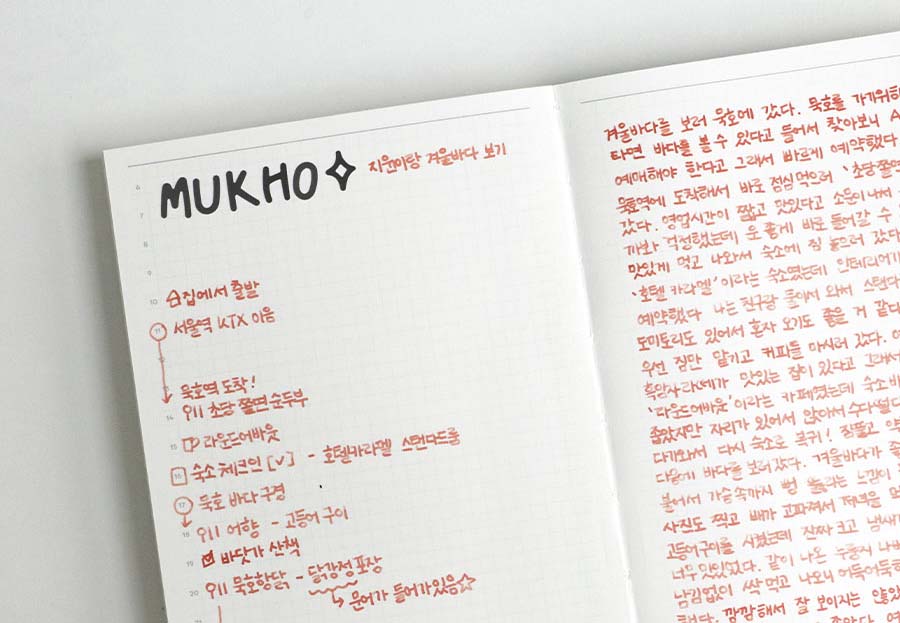 MUKHO
지원이랑 겨울바다 보기
6
7
8
9
10 집에서 출발
11 서울역 KTX 이음
12
묵호역 도착!
14 초당쫄면순두부
15 라운드어바웃
16 숙소 체크인 [v] - 호텔카라멜 스탠다드룸
17 묵호 바다 구경
18 어향 - 고등어 구이
19 바닷가 산책
20 묵호항닭 - 닭강정 포장
문어가 들어가있음☆
21
겨울바다를 보러 묵호에 갔다. 묵호를 가기위해
타면 바다를 볼 수 있다고 들어서 찾아보니 A
예매해야 한다고 그래서 빠르게 예약했다
묵호역에 도착해서 바로 점심먹으러 '초당쫄면
갔다. 영업시간이 짧고 맛있다고 소문이나서
까봐 걱정했는데 운 좋게 바로 들어갈 수
맛있게 먹고 나와서 숙소에 짐 놓으러 갔다
'호텔 카라멜'이라는 숙소였는데 인테리어가
예약했다 나는 친구랑 둘이 와서 스탠다
도미토리도 있어서 혼자 오기도 좋을 거 같다
우선 짐만 맡기고 커피를 마시러 갔다.
흑임자라떼가 맛있는 집이 있다고 그래서
'라운드어바웃'이라는 카페였는데 숙소
좁았지만 자리가 있어서 앉아서 수다떨다
다기와서 다시 숙소로 복귀! 짐풀고
다음에 바다를 보러갔다. 겨울바다가
불어서 가슴속까지 뻥 뚫리는 느낌이
사진도 찍고 배가 고파져서 저녁을 먹
고등어구이를 시켰는데 진짜 크고 냄새가
너무 맛있었다. 같이 나온 누룽지
남김없이 싹 먹고 나오니 어둑어둑
깜깜해서 잘 보이지는 않았